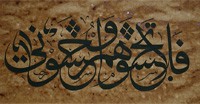 فلا تخشوهم واخشوني